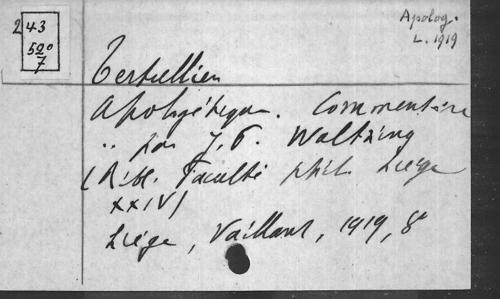 2 43
520
7
Apolog.
L. 1919
Tertullien
Apologétique. Commentaire
" par J. P. Waltzing
(Bibl. Faculté phil. Liège
XXIV)
Liège, Vaillant, 1919, 8°